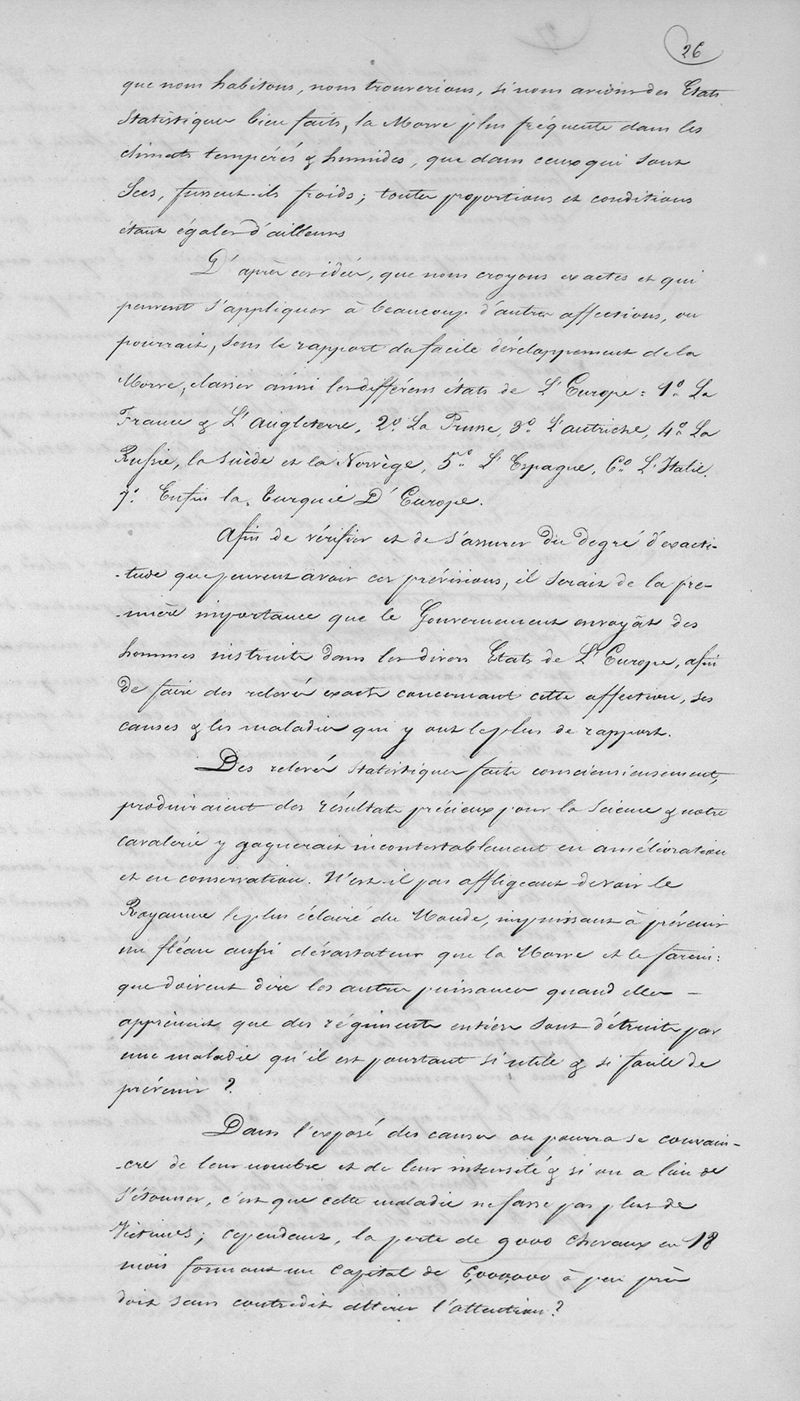 26
que nous habitons, nous trouverions, si nous avions des Etats
Statistiques bien faits, la Morve plus fréquente dans les
climats tempérés & humides, que dans ceux qui sont
Secs, fussent-ils froids; toutes proportions et conditions
étant égales d'ailleurs
D'après ces idées, que nous croyons exactes et qui
peuvent s'appliquer à beaucoup d'autres affections, on
pourrait, sous le rapport du facile développement de la
Morve, classer ainsi les différens états de L'Europe: 1.º La
France & L'Angleterre, 2º. La Prusse, 3º. L'autriche, 4º. La
Russie, la Suède et la Norvège, 5.º L'Espagne, 6º. L'Italie.
7º. Enfin la Turquie D'Europe.
Afin de vérifier et de s'assurer du degré d'exacti-
-tude que peuvent avoir ces prévisions, il serait de la pre-
-mière importance que le Gouvernement envoyât des
hommes instruits dans les divers Etats de L'Europe, afin
de faire des relevés exacts concernant cette affection, ses
causes & les maladies qui y ont le plus de rapport.
Des relevés statistiques faits consciensieusement,
produiraient des résultats précieux pour la Science & notre
cavalerie y gagnerait incontestablement en amélioration
et en conservation. N'est-il pas affligeant de voir le
Royaume le plus éclairé du Monde, impuissant à prévenir
un fléau aussi dévastateur que la Morve et le farcin:
que doivent dire les autres puissances quand elles -
apprenent que des régiments entiers sont détruits par
une maladie qu'il est pourtant si utile & si facile de
prévenir ?
Dans l'exposé des causes on pourra se convain-
-cre de leur nombre et de leur intensité & si on a lieu de
s'étonner, c'est que cette maladie ne fasse pas plus de
Victimes; cependant, la perte de 9000 chevaux en 18
mois formant un capital de 6,000,000 à peu près
doit sans contredit attirer l'attention?